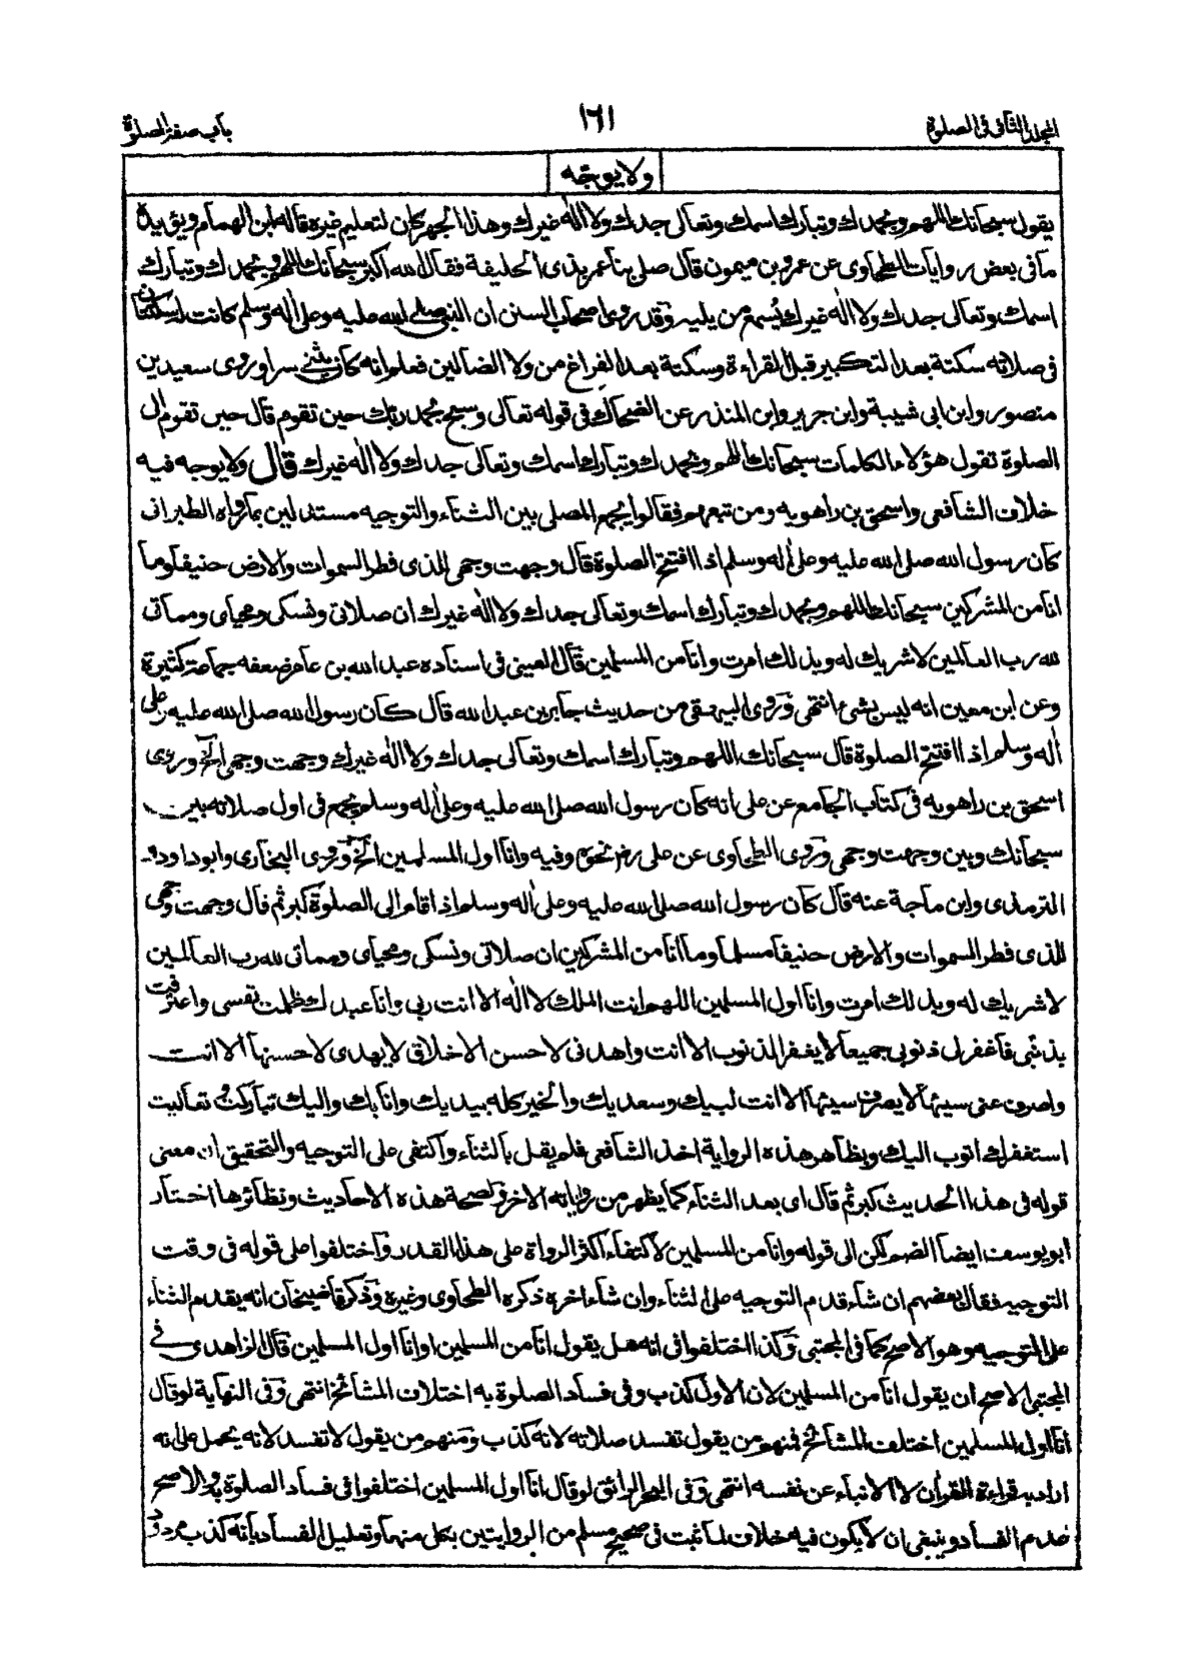 المجلد الثانی فی الصلوة
١٦١
باب صفة الصلوة
ولا یوجّه
یقول سبحانك اللهم وبحمدك وتبارك اسمك وتعالی جدك ولا اله غیرك وهذا الجهر کان لتعلیم غیره قاله ابن الهمام ویؤیده
ما فی بعض روایات الطحاوی عن عمرو بن میمون قال صلی بنا عمر بذی الحلیفة فقال الله اکبر سبحانك اللهم وبحمدك وتبارك
اسمك وتعالی جدك ولا اله غیرك یسمع من یلیه وقد روی اصحاب السنن ان النبی صلی الله علیه وعلی اله وسلم کانت له سکتتان
فی صلاته سکتة بعد التکبیر قبل القراءة وسکتة بعد الفراغ من ولا الضالین فعلم انه کان یثنی سرا وروی سعید بن
منصور وابن ابی شیبة وابن جریر وابن المنذر عن الضحاك فی قوله تعالی وسبح بحمد ربك حین تقوم قال حین تقوم الی
الصلوة تقول هؤلاء الکلمات سبحانك اللهم وبحمدك وتبارك اسمك وتعالی جدك ولا اله غیرك قال ولا یوجه فیه
خلاف الشافعی واسحق بن راهویه ومن تبعهم فقالوا یجمع المصلی بین الثناء والتوجیه مستدلین بما رواه الطبرانی
کان رسول الله صلی الله علیه وعلی اله وسلم اذا افتتح الصلوة قال وجهت وجهی للذی فطر السموات والارض حنیفا وما
انا من المشرکین سبحانك اللهم وبحمدك وتبارك اسمك وتعالی جدك ولا اله غیرك ان صلاتی ونسکی ومحیای ومماتی
لله رب العالمین لا شریك له وبذلك امرت وانا من المسلمین قال العینی فی اسناده عبد الله بن عامر ضعفه جماعة کثیرة
وعن ابن معین انه لیس بشیء انتهی وروی البیهقی من حدیث جابر بن عبد الله قال کان رسول الله صلی الله علیه وعلی
اله وسلم اذا افتتح الصلوة قال سبحانك اللهم وتبارك اسمك وتعالی جدك ولا اله غیرك وجهت وجهی الخ وروی
اسحق بن راهویه فی کتاب الجامع عن علی انه کان رسول الله صلی الله علیه وعلی اله وسلم یجمع فی اول صلاته بین
سبحانك وبین وجهت وجهی وروی الطحاوی عن علی رض نحوه وفیه وانا اول المسلمین الخ وروی البخاری وابوداود و
الترمذی وابن ماجة عنه قال کان رسول الله صلی الله علیه وعلی اله وسلم اذا قام الی الصلوة کبر ثم قال وجهت وجهی
للذی فطر السموات والارض حنیفا مسلما وما انا من المشرکین ان صلاتی ونسکی ومحیای ومماتی لله رب العالمین
لا شریك له وبذلك امرت وانا اول المسلمین اللهم انت الملك لا اله الا انت ربی وانا عبدك ظلمت نفسی واعترفت
بذنبی فاغفر لی ذنوبی جمیعا لا یغفر الذنوب الا انت واهدنی لاحسن الاخلاق لا یهدی لاحسنها الا انت
واصرف عنی سیئها لا یصرف سیئها الا انت لبیك وسعدیك والخیر کله بیدیك وانا بك والیك تبارکت وتعالیت
استغفرك اتوب الیك وبظاهر هذه الروایة اخذ الشافعی فلم یقل بالثناء واکتفی علی التوجیه والتحقیق ان معنی
قوله فی هذا الحدیث کبر ثم قال ای بعد الثناء کما یظهر من روایاته الاخر ولصحة هذه الاحادیث ونظائرها اختار
ابو یوسف ایضا الضم لکن الی قوله وانا من المسلمین لاکتفاء اکثر الرواة علی هذا القدر واختلفوا علی قوله فی وقت
التوجیه فقال بعضهم ان شاء قدم التوجیه علی الثناء وان شاء اخره ذکره الطحاوی وغیره وذکر قاضیخان انه یقدم الثناء
علی التوجیه وهو الاصح کما فی المجتبی وکذا اختلفوا فی انه هل یقول انا من المسلمین او انا اول المسلمین قال الزاهدی فی
المجتبی الاصح ان یقول انا من المسلمین لان الاول کذب وفی فساد الصلوة به اختلاف المشائخ انتهی وفی النهایة لو قال
انا اول المسلمین اختلف المشائخ فمنهم من یقول تفسد صلاته لانه کذب ومنهم من یقول لا تفسد لانه یحمل علی انه
اراد به قراءة القرأن لا الانباء عن نفسه انتهی وفی البحر الرائق لو قال انا اول المسلمین اختلفوا فی فساد الصلوة به والاصح
عدم الفساد وینبغی ان لا یکون فیه خلاف لما ثبت فی صحیح مسلم من الروایتین بکل منهما وتعلیل الفساد بانه کذب مردود